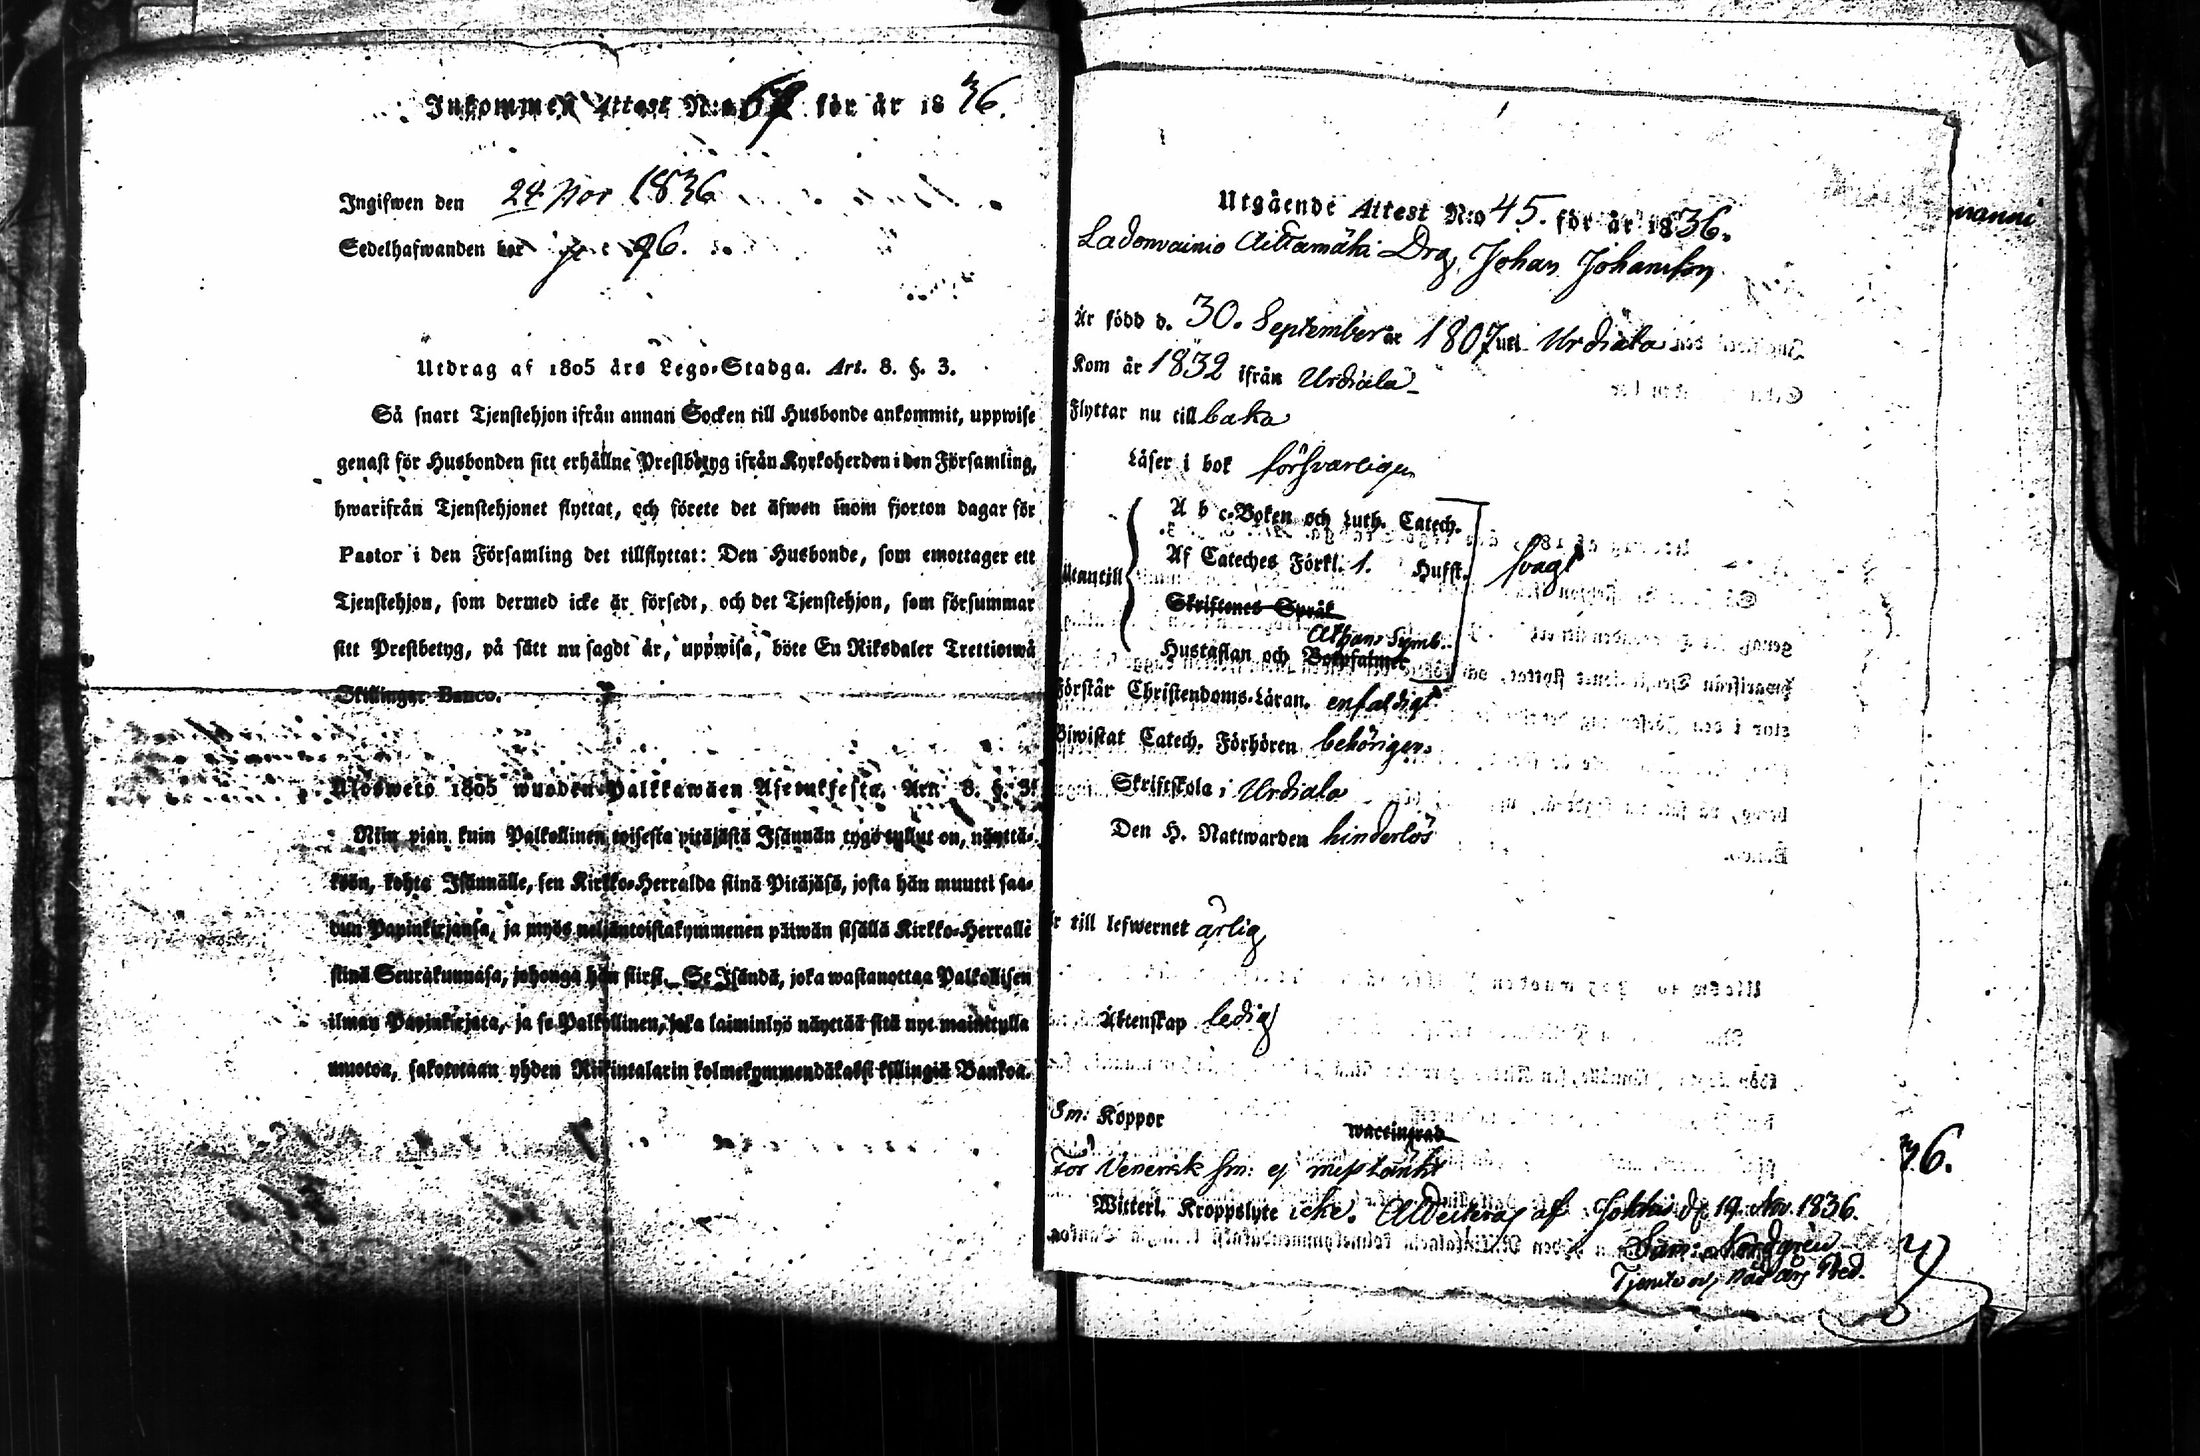 Inkommen Attest N:o 67 för år 1836.
Ingifwen den 24 Nov 1836
Sedelhafwanden bor 96.
Utdrag af 1805 års Lego-Stadga. Art. 8. §. 3.
Så snart Tjenstehjon ifrån annan Socken till Husbonde ankommit, uppwise
genast för Husbonden sitt erhållne Prestbetyg ifrån Kyrkoherden i den Församling,
hwarifrån Tjenstehjonet flyttat, och förete det äfwen inom fjorton dagar för
Pastor i den Församling det tillflyttat: Den Husbonde, som emottager ett
Tjenstehjon, som dermed icke är försedt, och det Tjenstehjon, som försummar
sitt Prestbetyg, på sätt nu sagdt är, uppwisa, böte En Riksdaler Trettiotwå
Skillingar Banco.
Ulosweto 1805 wuoden Palkkawäen Asetuksesta. Art. 8. §. 3.
Niin pian kuin Palkollinen toisesta pitäjästä Isännän tygö tullut on, näyttä-
köön, kohta Isännälle, sen Kirkko-Herralda siinä Pitäjäsä, josta hän muutti saa-
dun Papinkirjansa, ja myös neljäntoistakymmenen päiwän sisällä Kirkko-Herralle
siinä Seurakunnasa, johonga hän siirsi. Se Isändä, joka wastanottaa Palkollisen
ilman Papinkirjata, ja se Palkollinen, joka laiminlyö näyttää sitä nyt mainitulla
muotoa, sakotetaan yhden Riikintalarin kolmekymmendäkaksi killingiä Bankoa.
Utgående Attest N:o 45. för år 1836.
Ladonvainio Aittamäki Drg. Johan Johansson
Är född d. 30. September år 1807 uti Urdiala
Kom år 1832 ifrån Urdiala
Flyttar nu till baka
Läser i bok försvarligen
A b c-Boken och Luth. Catech.
Utantill Af Cateches Förkl. 1. Hufst. svagt
Skriftenes Språk
Athan. Symb.
Hustaflan och Botpsalmer
Förstår Christendoms-Läran. enfaldigt
Biwistat Catech. Förhören behörigen.
Skriftskola i Urdiala
Den H. Nattwarden hinderlös
Är till lefwernet ärlig
Äktenskap ledig
Sm: Koppor
För Venerisk Sm: ej misstänkt
Witterl. Kroppslyte icke. af Jokkis d. 19 Nov. 1836.
Sam: Nordgren
36.